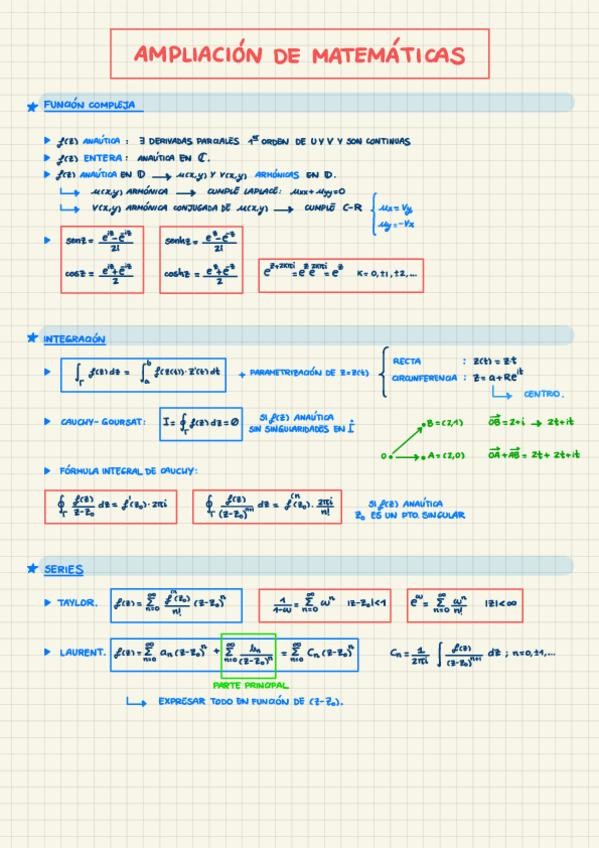 AMPLIACIÓN DE MATEMÁTICAS
★ FUNCIÓN COMPLEJA
▶ f(z) ANALÍTICA : ∃ DERIVADAS PARCIALES 1er ORDEN DE U Y V Y SON CONTINUAS
▶ f(z) ENTERA : ANALÍTICA EN ℂ.
▶ f(z) ANALÍTICA EN 𝔻 → u(x,y) Y v(x,y) ARMÓNICAS EN 𝔻.
↳ u(x,y) ARMÓNICA → CUMPLE LAPLACE: uxx + uyy = 0
↳ v(x,y) ARMÓNICA CONJUGADA DE u(x,y) → CUMPLE C-R { ux = vy
uy = -vx
▶ senz = (e^{iz} - e^{-iz})/2i   senhz = (e^z - e^{-z})/2
cosz = (e^{iz} + e^{-iz})/2   coshz = (e^z + e^{-z})/2   e^{z+2kπi} = e^z e^{2kπi} = e^z   K = 0, ±1, ±2, ...
★ INTEGRACIÓN
▶ ∫_Γ f(z) dz = ∫_a^b f(z(t)) · z'(t) dt   + PARAMETRIZACIÓN DE z = z(t) { RECTA : z(t) = z·t
CIRCUNFERENCIA : z = a + Re^{it}
↳ CENTRO.
▶ CAUCHY-GOURSAT: I = ∮_Γ f(z) dz = 0   SI f(z) ANALÍTICA
SIN SINGULARIDADES EN Γ
B = (2,1)   OB = 2+i → 2t+it
0 A = (2,0)   OA + AB = 2t + 2t+it
▶ FÓRMULA INTEGRAL DE CAUCHY:
∮_Γ f(z)/(z-z₀) dz = f'(z₀) · 2πi   ∮_Γ f(z)/(z-z₀)^{n+1} dz = f^{(n}(z₀) · 2πi/n!   SI f(z) ANALÍTICA
z₀ ES UN PTO. SINGULAR
★ SERIES
▶ TAYLOR. f(z) = ∑_{n=0}^∞ f^{(n}(z₀)/n! (z-z₀)^n   1/(1-ω) = ∑_{n=0}^∞ ω^n   |z-z₀| < 1   e^ω = ∑_{n=0}^∞ ω^n/n!   |z| < ∞
▶ LAURENT. f(z) = ∑_{n=0}^∞ a_n (z-z₀)^n + ∑_{n=0}^∞ b_n/(z-z₀)^n = ∑_{n=0}^∞ C_n (z-z₀)^n   C_n = 1/2πi ∫ f(z)/(z-z₀)^{n+1} dz ; n = 0, ±1, ...
PARTE PRINCIPAL
↳ EXPRESAR TODO EN FUNCIÓN DE (z-z₀).